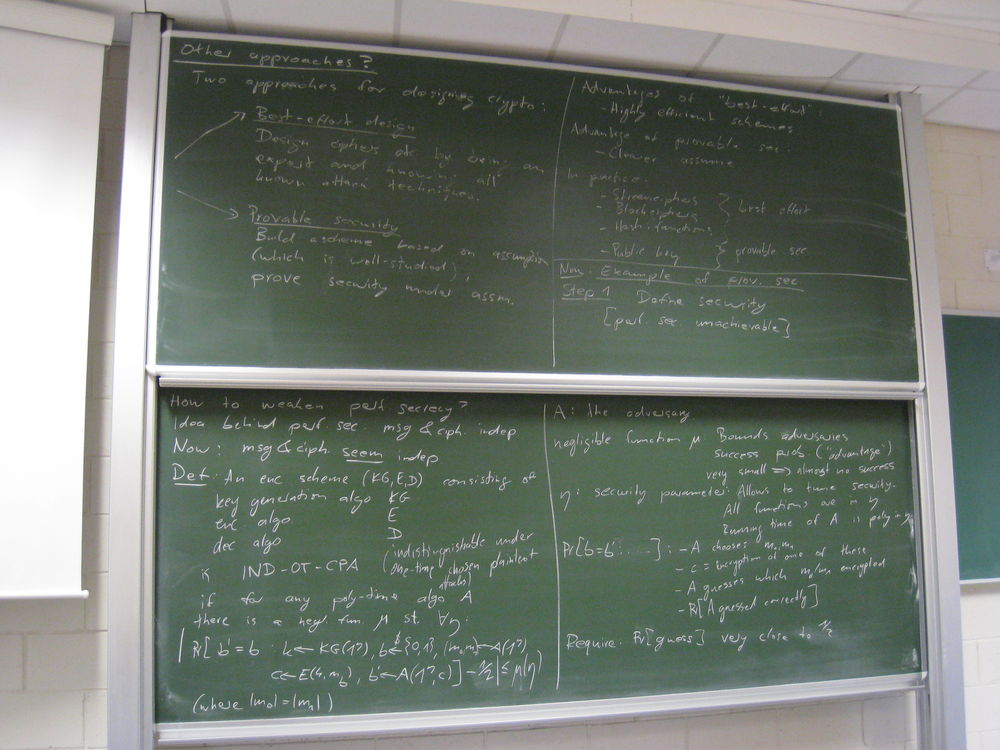 Other approaches?
Two approaches for designing crypto:
Best-effort design
Design ciphers etc. by being an
expert and knowing all
known attack techniques.
Provable security
Build a scheme based on assumption
(which is well-studied),
prove security under assm.
Advantages of "best-effort":
- Highly efficient schemes
Advantage of provable sec.:
- Clearer
In practice:
- Streamciphers
- Blockciphers
- Hash functions
best effort
- Public key
provable sec
Now: Example of prov. sec
Step 1 Define security
[perf. sec. unachievable]
How to weaken perf secrecy?
Idea behind perf. sec. msg & ciph. indep
Now: msg & ciph. seem indep
Def: An enc scheme (KG,E,D) consisting of
key generation algo KG
enc algo E
dec algo D
is IND-OT-CPA (indistinguishable under
one-time chosen plaintext
attacks)
if for any poly-time algo A
there is a negl. fun. μ st. ∀η:
|Pr[b'=b : k←KG(1^η), b←{0,1}, (m₀,m₁)←A(1^η)
c←E(k,m_b), b'←A(1^η,c)] - 1/2| ≤ μ(η)
(where |m₀|=|m₁|)
A: the adversary
negligible function μ Bounds adversaries
success prob. ("advantage")
very small ⇒ almost no success
η: security parameter: Allows to tune security.
All functions are in η
Running time of A is poly in η
Pr[b=b': ....] : - A chooses m₀,m₁
- c = encryption of one of these
- A guesses which m₀/m₁ encrypted
- Pr[A guessed correctly]
Require: Pr[guess] very close to 1/2